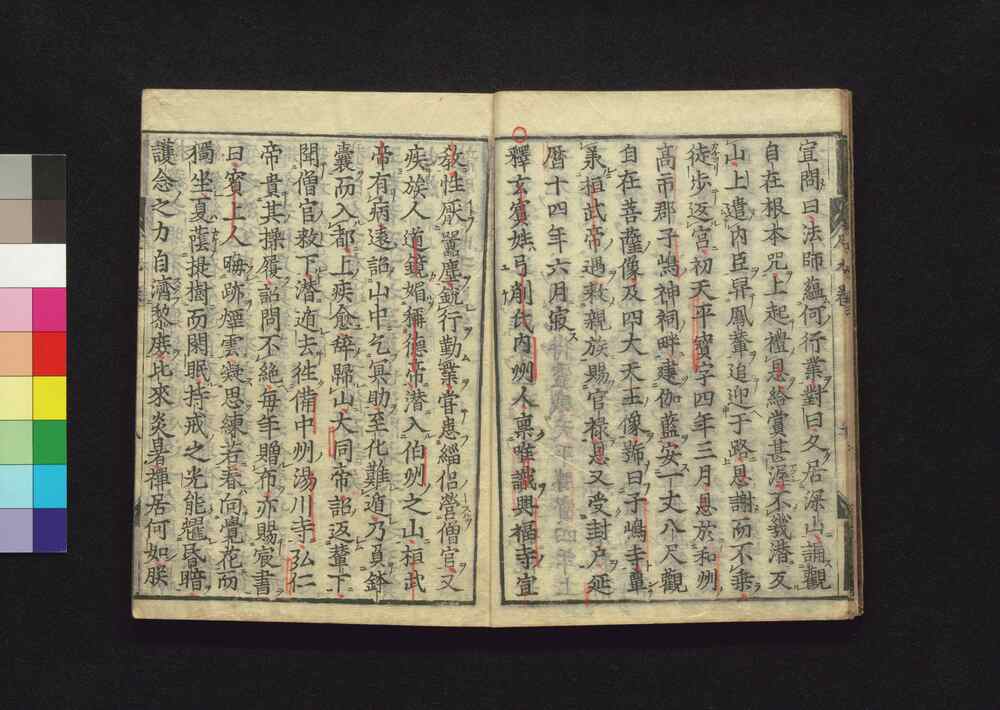 宜問曰法師蘊何行業對曰久居深山誦觀
自在根本咒上起禮恩給賞甚渥不幾潜反
山上遣内臣舁鳳輦追迎于路恩謝而不乗
徒歩返宮初天平寳字四年三月恩於和州
高市郡子嶋神祠畔建伽藍安一丈八尺觀
自在菩薩像及四大天王像號曰子嶋寺單
素桓武帝過敕親族賜官祿恩又受封戸延
暦十四年六月寂
釋玄賓姓弓削氏内州人禀唯識興福寺宣
敎性厭囂塵銳行勤業甞患緇侶營僧官又
疾族人道鏡媚稱德帝潜入伯州之山桓武
帝有病遠詔山中乞冥助至化難遁乃負鉢
囊而入都上疾愈辭歸山大同帝詔返輦下
聞僧官敕下潜遁去徃備中州湯川寺弘仁
帝貴其操履詔問不絶毎年贈布亦賜宸書
曰賓上人晦跡煙雲凝思練若春向覺花而
獨坐夏蔭提樹而閑眠持戒之光能耀昏暗
護念之力自濟黎庶比來炎暑禪居何如朕